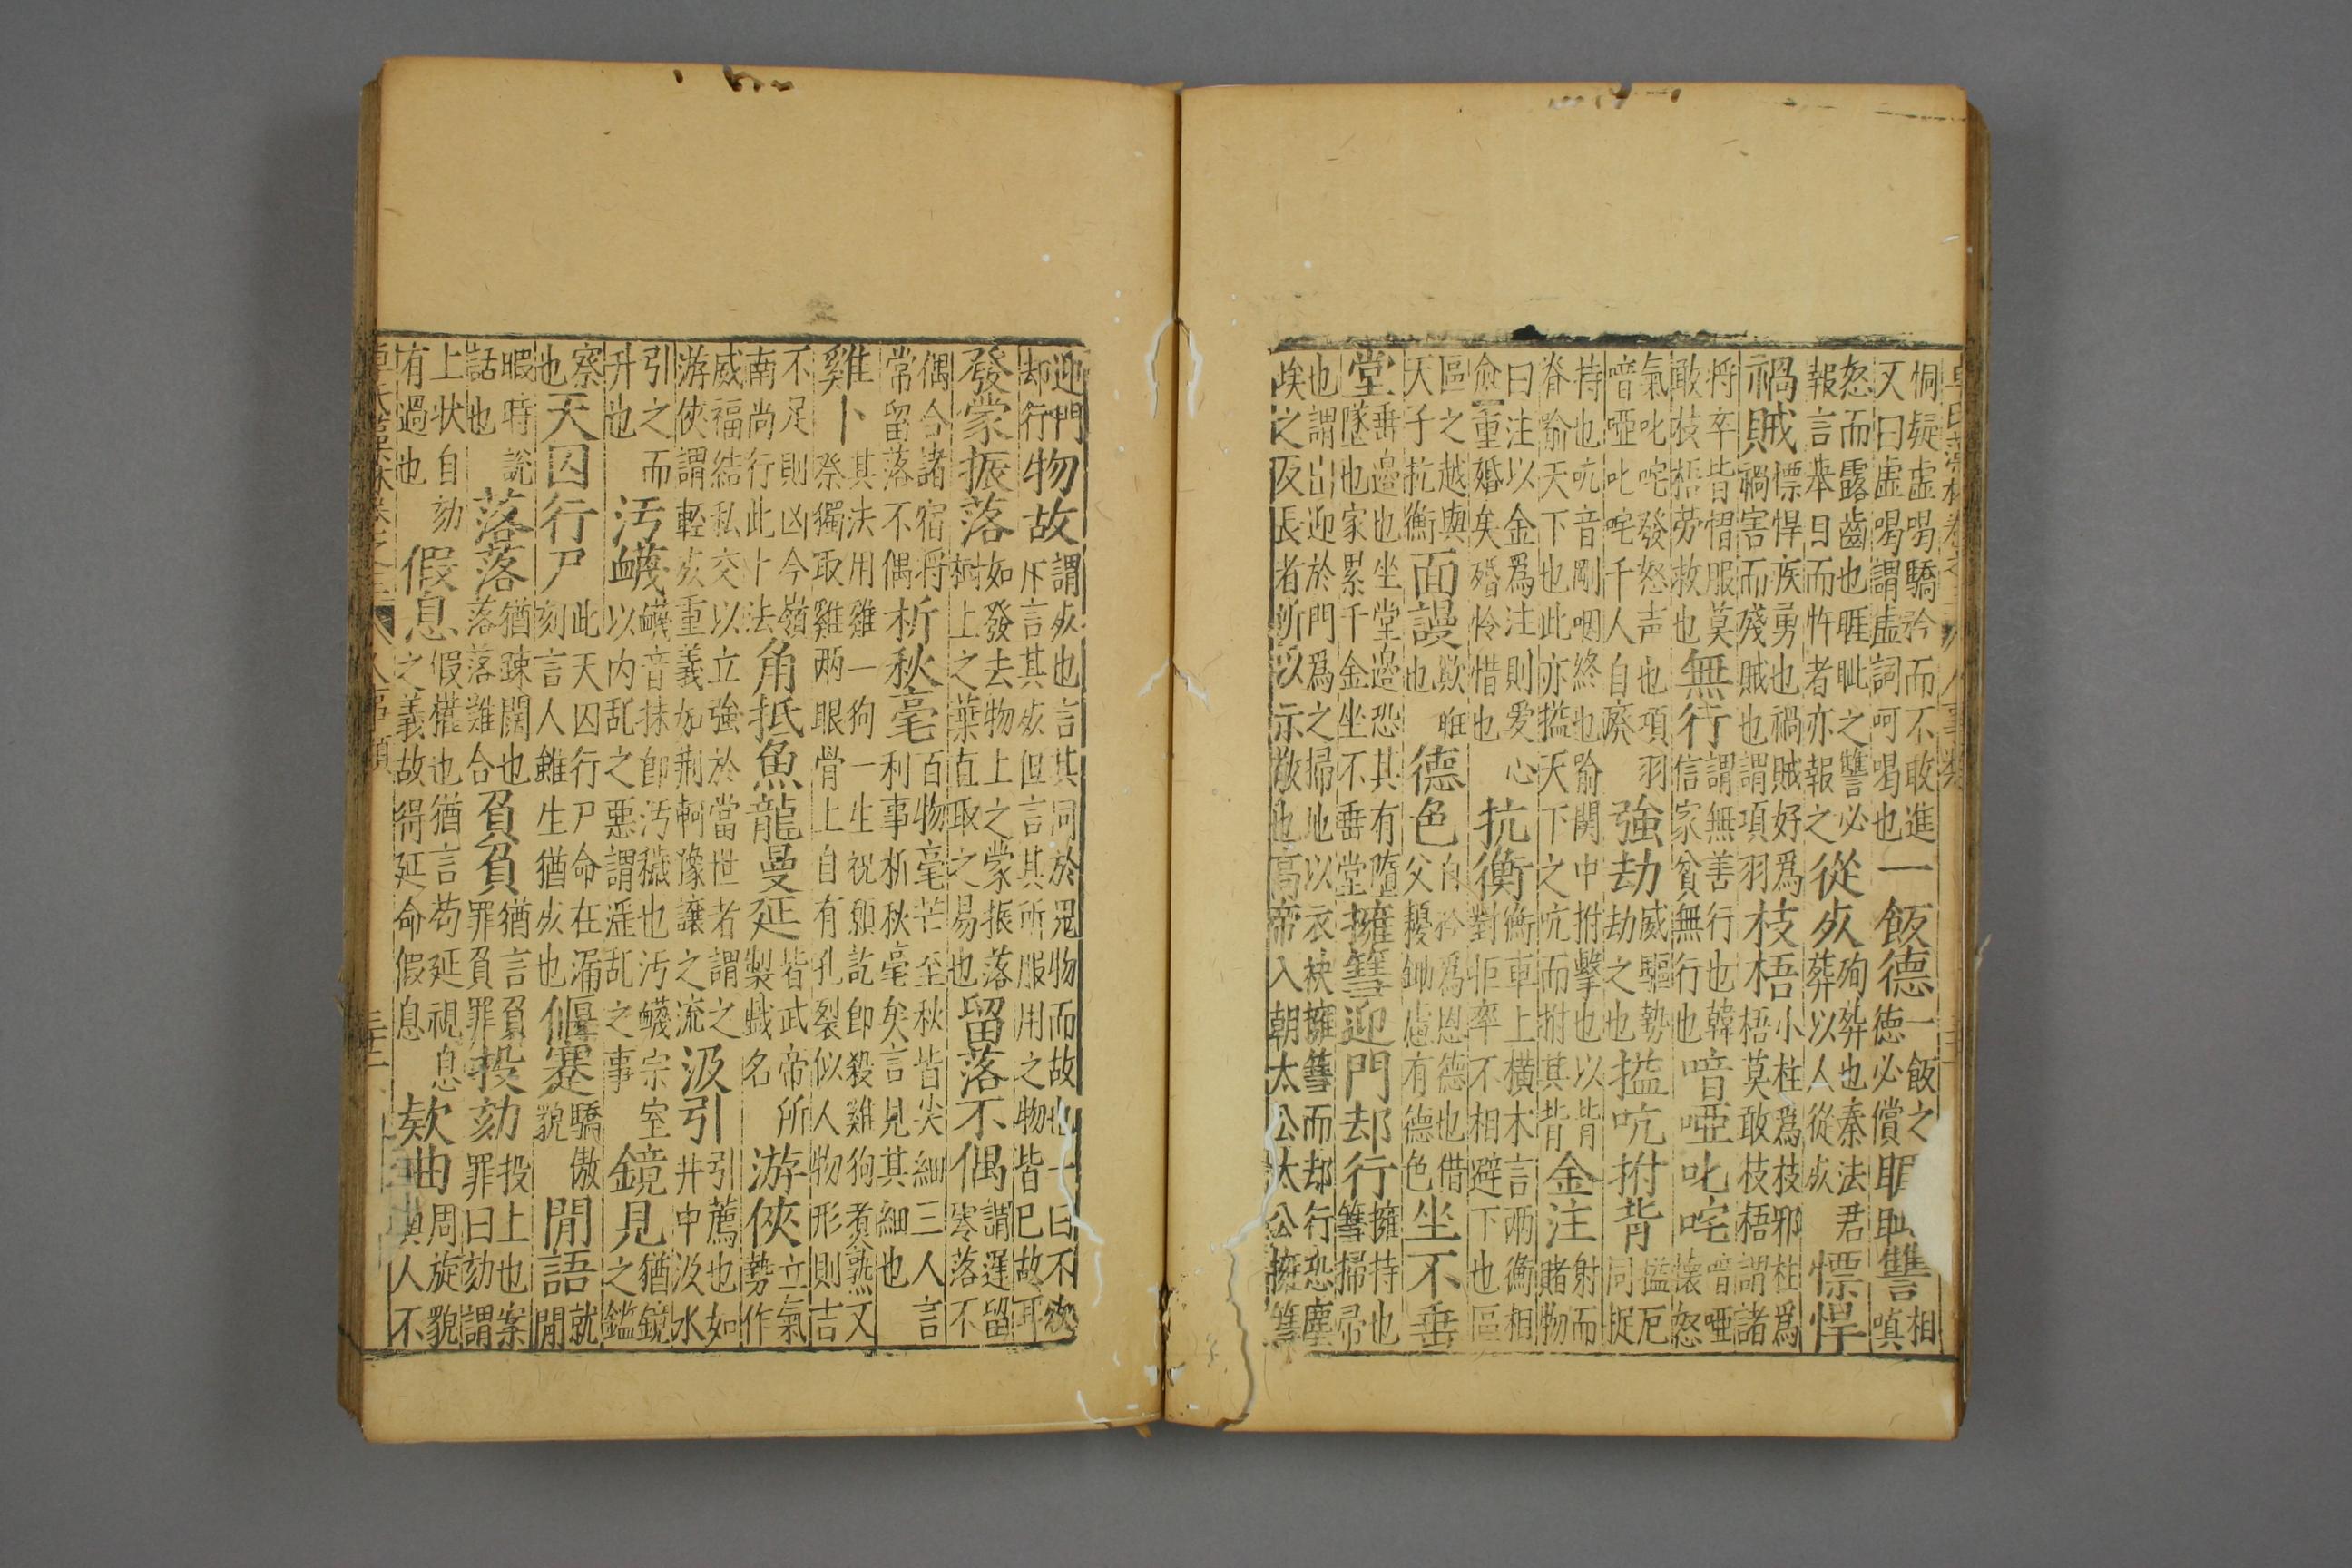 恫疑虛喝驕矜而不敢進又曰虛喝謂虛詞呵喝也一飯德一飯之德必償睚眦讐相嗔
怒而露齒也睚眦之讐必報言舉日而忤者亦報之從死殉葬也秦法君葬以人從死慓悍
禍賊慓悍疾勇也禍賊好爲禍害而殘賊也謂項羽枝梧小柱爲枝邪柱爲梧莫敢枝梧謂諸
将卒皆慴服莫敢枝梧劳救也無行謂無善行也韓信家貧無行也喑啞叱咤喑啞懷怒
氣叱咤發怒声也項羽喑啞叱咤千人自廢強劫威驅勢劫之也搤吭拊背搤厄同捉
持也吭音剛咽終也喻関中拊擊也以背脊喻天下也此亦搤天下之吭而拊其背金注射而賭物
曰注以金爲注則爱心愈重婚矣婚怜惜也抗衡衡車上橫木言兩衡相對拒率不相避下也區
區之越與天子抗衡面謾欺誑也德色自矜爲恩德也借父擾鋤慮有德色坐不垂
堂垂邉也坐堂邉恐其有墮墜也家累千金坐不垂堂擁篲迎門却行擁持也篲掃帚
也謂出迎於門爲之掃地以衣袂擁篲而却行恐塵埃之及長者所以示敬也髙帝入朝太公太公擁篲
迎門却行物故謂死也言其同於鬼物而故也一曰不欲斥言其死但言其所服用之物皆已故耳
發蒙振落如發去物上之蒙振落樹上之葉直取之易也留落不偶謂遲留零落不
偶合諸宿将常留落不偶析秋毫百物毫芒至秋皆尖細三人言利事析秋毫矣言見其細也
雞卜其法用雞一狗一生祝願訖卽殺雞狗煮熟又祭獨取雞兩眼骨上自有孔裂似人物形則吉
不足則凶今嶺南尚行此十法角抵魚龍曼延皆武帝所製戱名游俠立氣勢作
威福結私交以立強於當世者謂之游俠謂輕死重義如荆軻豫讓之流汲引引薦也如井中汲水
引之而升也汚衊衊音抹卽汚穢也汚衊宗室以内乱之惡謂淫乱之事鏡見猶鏡之鑑
察也天囚行尸此天囚行尸命在漏刻言人雖生猶死也偃蹇驕傲貌閒語就閒
暇時說話也落落猶疎闊也落落難合負負猶言負罪負罪投劾投上也案罪曰劾謂
上状自劾有過也假息假權也猶言苟延視息之義故得延命假息欵曲周旋貌與人不